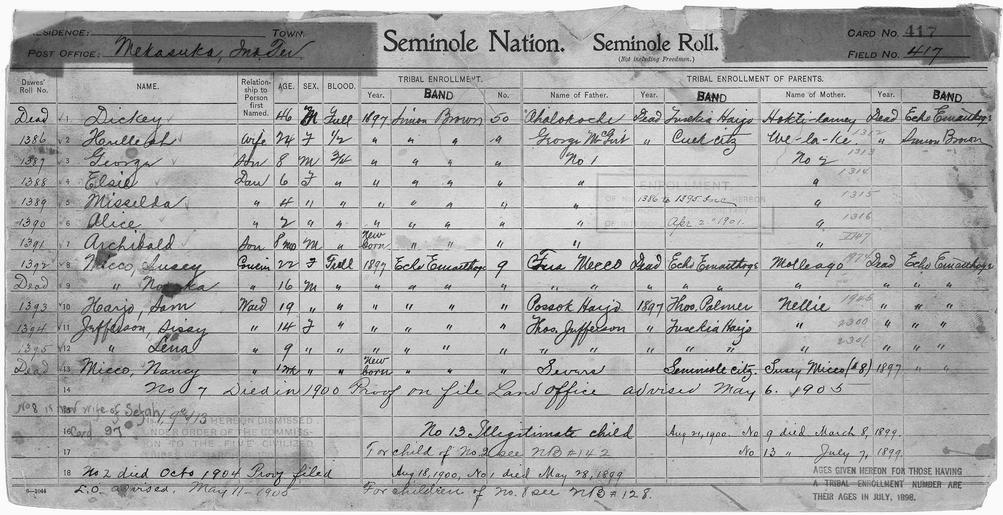 RESIDENCE: TOWN.
POST OFFICE: Mekasuka, Ind Ter
Seminole Nation. Seminole Roll.
(Not including Freedmen.)
CARD NO. 417
FIELD NO. 417
Dawes' Roll No. NAME. Relationship to Person first Named. AGE. SEX. BLOOD. TRIBAL ENROLLMENT. Year. BAND No. TRIBAL ENROLLMENT OF PARENTS. Name of Father. Year. BAND Name of Mother. Year. BAND
Dead 1 Dickey 46 M Full 1897 Simon Brown 50 Ahalokoche Dead Fusekia Harjo Dead Echo Emarthoge
1386 2 Wife 24 F 1/2 " " " " George McGirt " We-la-ke 1312 " Simon Brown
1387 3 George Son 8 M 3/4 " " " " No 1 No 2 1313
1388 4 Elsie Dau 6 F " " " " " " " 1314
1389 5 " 4 " " " " " " " " 1315
1390 6 Alice " 2 " " " " " " " " 1316
1391 7 Archibald Son 8 mo M " New born " " " "
1392 8 Micco, Susey Cousin 22 F Full 1897 Echo Emarthoge 9 Micco Dead Echo Emarthoge Dead Echo Emarthoge
Dead 9 " " 16 M " " " " " " " " " " "
1393 10 Harjo, Sam Ward 19 " " " " " Possok Harjo 1897 Thos. Palmer Nellie " " "
1394 11 Jefferson, Sissy " 14 F " " " " " Thos. Jefferson " Fusekia Harjo " 2300 " " "
1395 12 " Lena " 9 " " " " " " " " " " 2301 " " "
Dead 13 Micco, Nancy " " New born " " Severs Seminole city. Susey Micco (#8) 1897 " "
14 No 7 Died in 1900 Proof on file Land Office advised May 6. 1905
ENROLLMENT
1386 to 1395 Inc HEREON
Apr 2 1901.
No 8 is now wife of Sefah,
Card 97
HEREON DISMISSED
ORDER OF THE COMMIS-
SION TO THE FIVE CIVILIZED
16 No 13 Illegitimate child Aug 21, 1900. No 9 died March 8, 1899.
17 For child of No. 2 see NB # 142 No 13 " July 7, 1899.
18 No. 2 died Oct. 1904 Proof filed Aug 18, 1900, No 1 died May 28, 1899
L.O. advised. May 11-1905 For children of No. 8 see NB # 128.
AGES GIVEN HEREON FOR THOSE HAVING
A TRIBAL ENROLLMENT NUMBER ARE
THEIR AGES IN JULY, 1898.